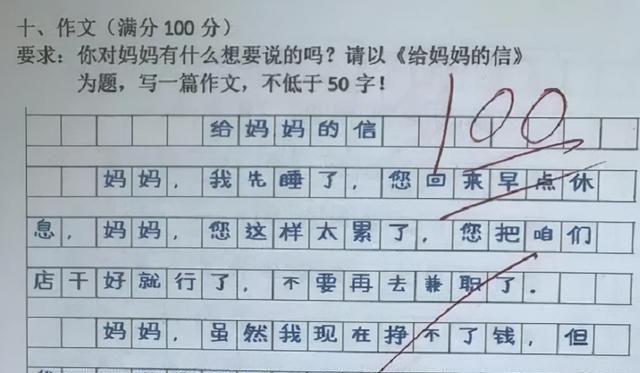 十、作文（满分 100 分）
要求：你对妈妈有什么想要说的吗？请以《给妈妈的信》
为题，写一篇作文，不低于 50 字！
100
给妈妈的信
妈妈，我先睡了，您回来早点休
息，妈妈，您这样太累了，您把咱们
店干好就行了，不要再去兼职了．
妈妈，虽然我现在挣不了钱，但